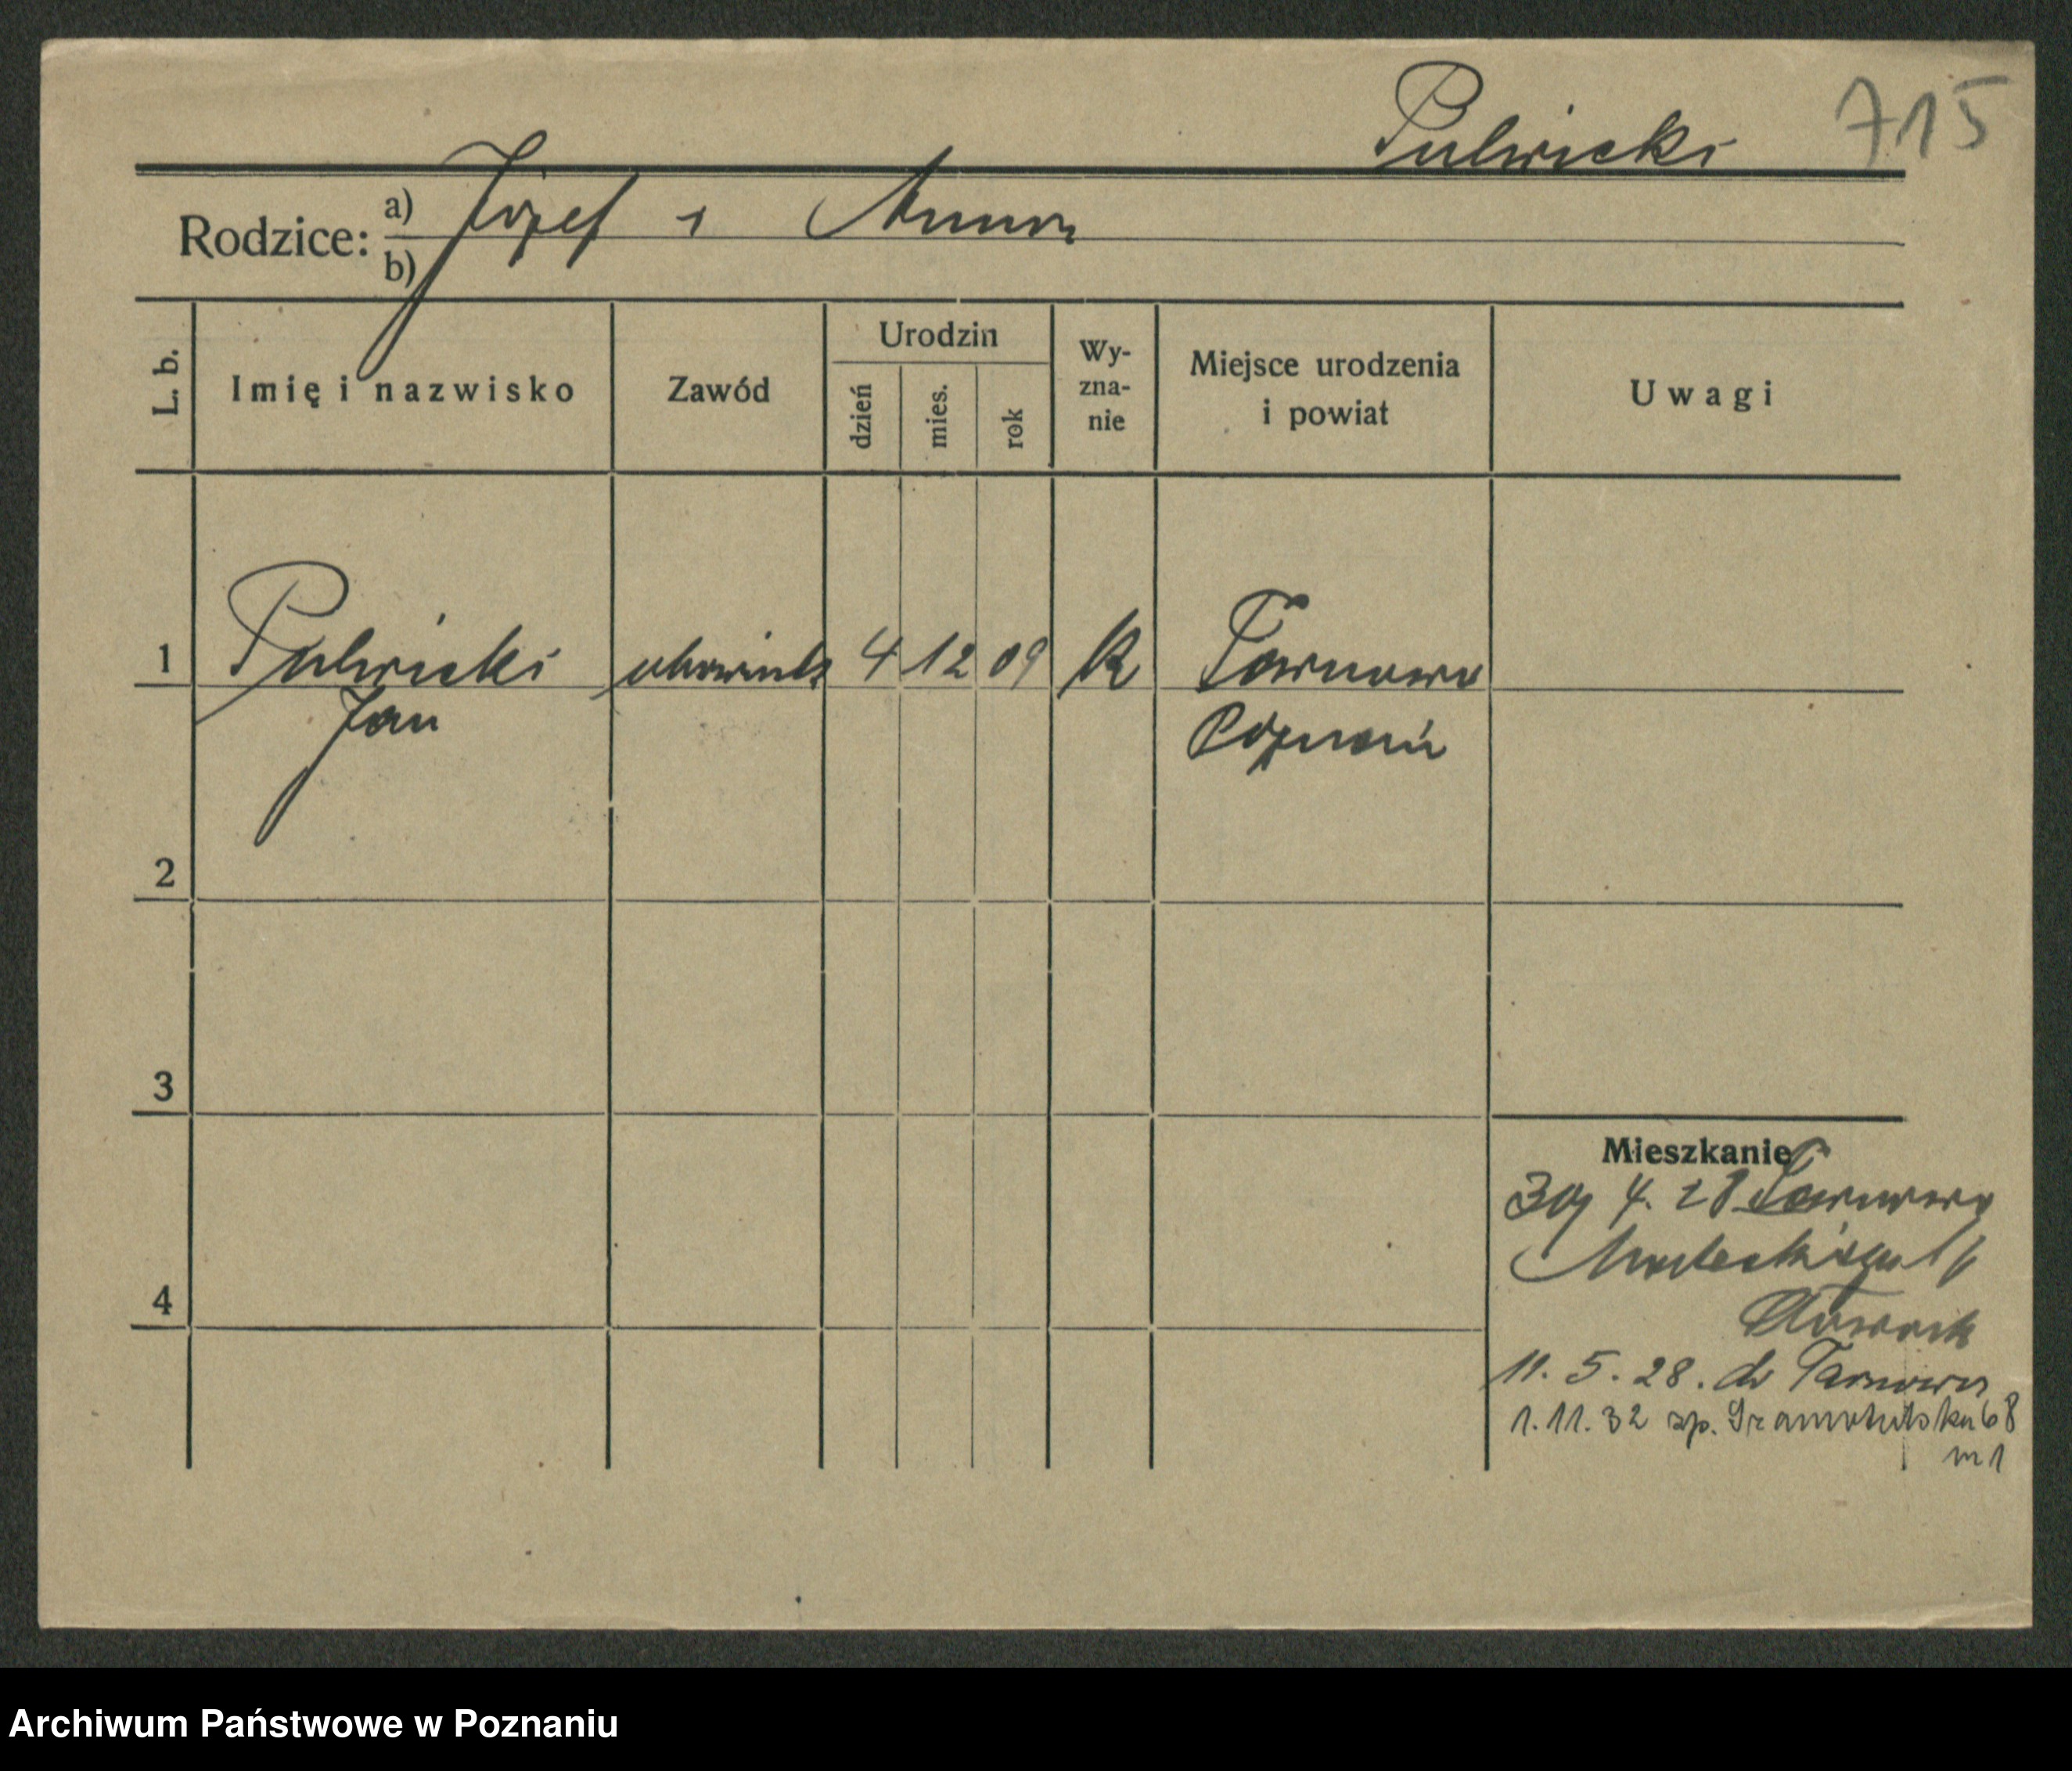 715
Pulwicki
Rodzice: a) Józef i Anna
b)
L. b.
Imię i nazwisko
Zawód
Urodzin
dzień
mies.
rok
Wy-
zna-
nie
Miejsce urodzenia
i powiat
Uwagi
1
Pulwicki 4 12 09 K Tarnowo
Jan Poznań
2
3
4
Mieszkanie
30 4. 28 Tarnowo
Nowack
11. 5. 28. do Tarnowa
1. 11. 32 zp. 68
m 1
Archiwum Państwowe w Poznaniu